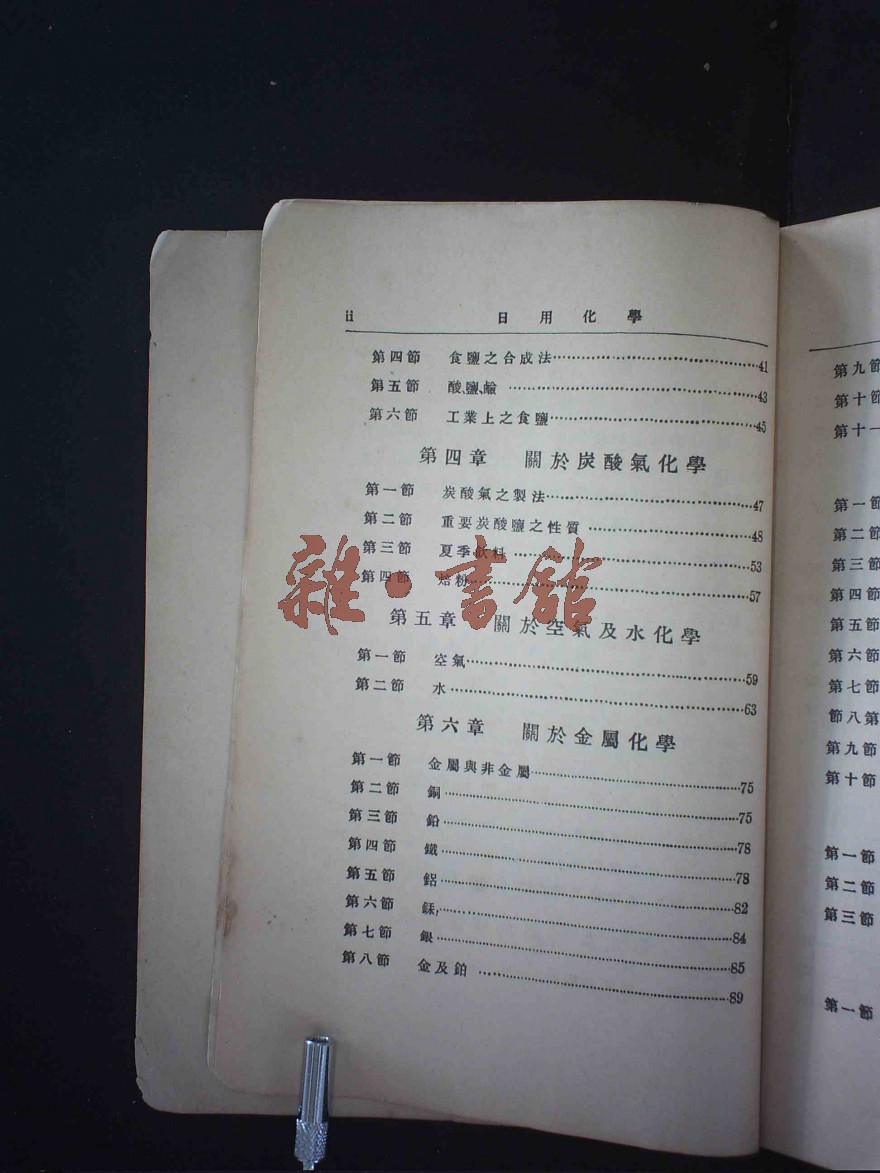 ii 日用化學
第四節 食鹽之合成法……41
第五節 酸、鹽、鹼……43
第六節 工業上之食鹽……45
第四章 關於炭酸氣化學
第一節 炭酸氣之製法……47
第二節 重要炭酸鹽之性質……48
第三節 夏季飲料……53
第四節 焙粉……57
第五章 關於空氣及水化學
第一節 空氣……59
第二節 水……63
第六章 關於金屬化學
第一節 金屬與非金屬……75
第二節 銅……75
第三節 鉛……78
第四節 鐵……78
第五節 鋁……82
第六節 ……84
第七節 銀……85
第八節 金及鉑……89
雜·書館
第九節
第十節
第十一
第一節
第二節
第三節
第四節
第五節
第六節
第七節
節八第
第九節
第十節
第一節
第二節
第三節
第一節